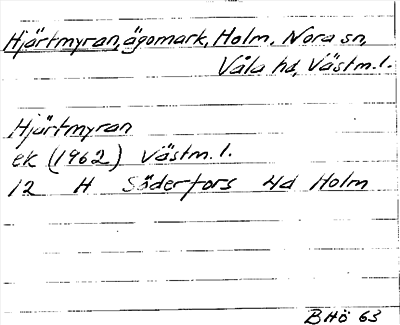 Hjärtmyran, ägomark, Holm, Nora sn,
Våla hd, Västm. l.
Hjärtmyran
ek (1962) Västm. l.
12 H Söderfors 4d Holm
BHö 63